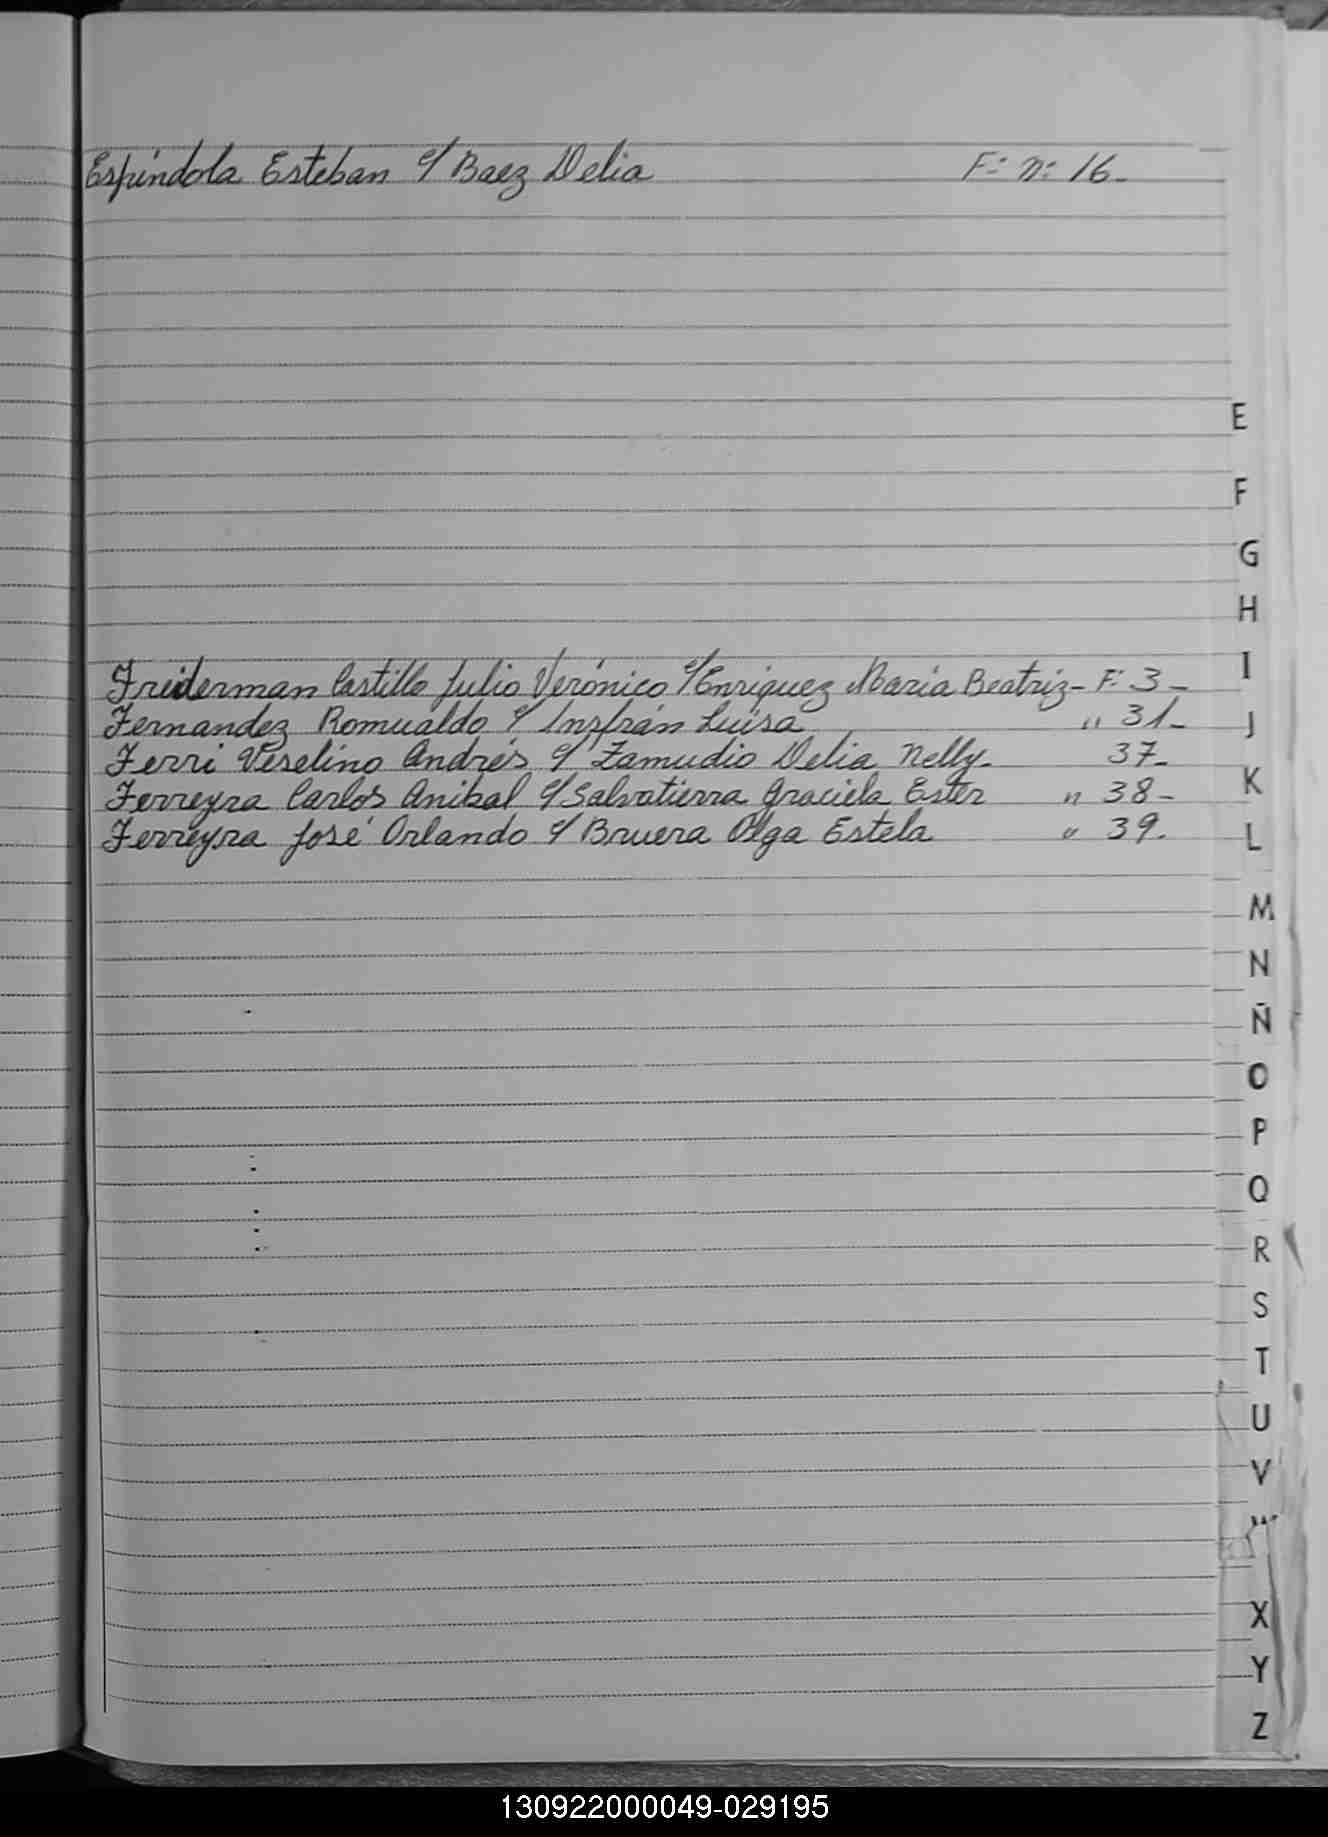 Espíndola Esteban c/ Baez Delia F: n: 16-
E
F
G
H
Friderman Castillo Julio Verónico c/ Enriquez Maria Beatriz- F: 3-
I
Fernandez Romualdo c/ Insfrán Luisa " 31-
J
Ferri Veselino Andrés c/ Zamudio Delia Nelly- 37-
K
Ferreyra Carlos Anibal c/ Salvatierra Graciela Ester " 38-
Ferreyra José Orlando c/ Bruera Olga Estela " 39.
L
M
N
Ñ
O
P
Q
R
S
T
U
V
W
X
Y
Z
130922000049-029195